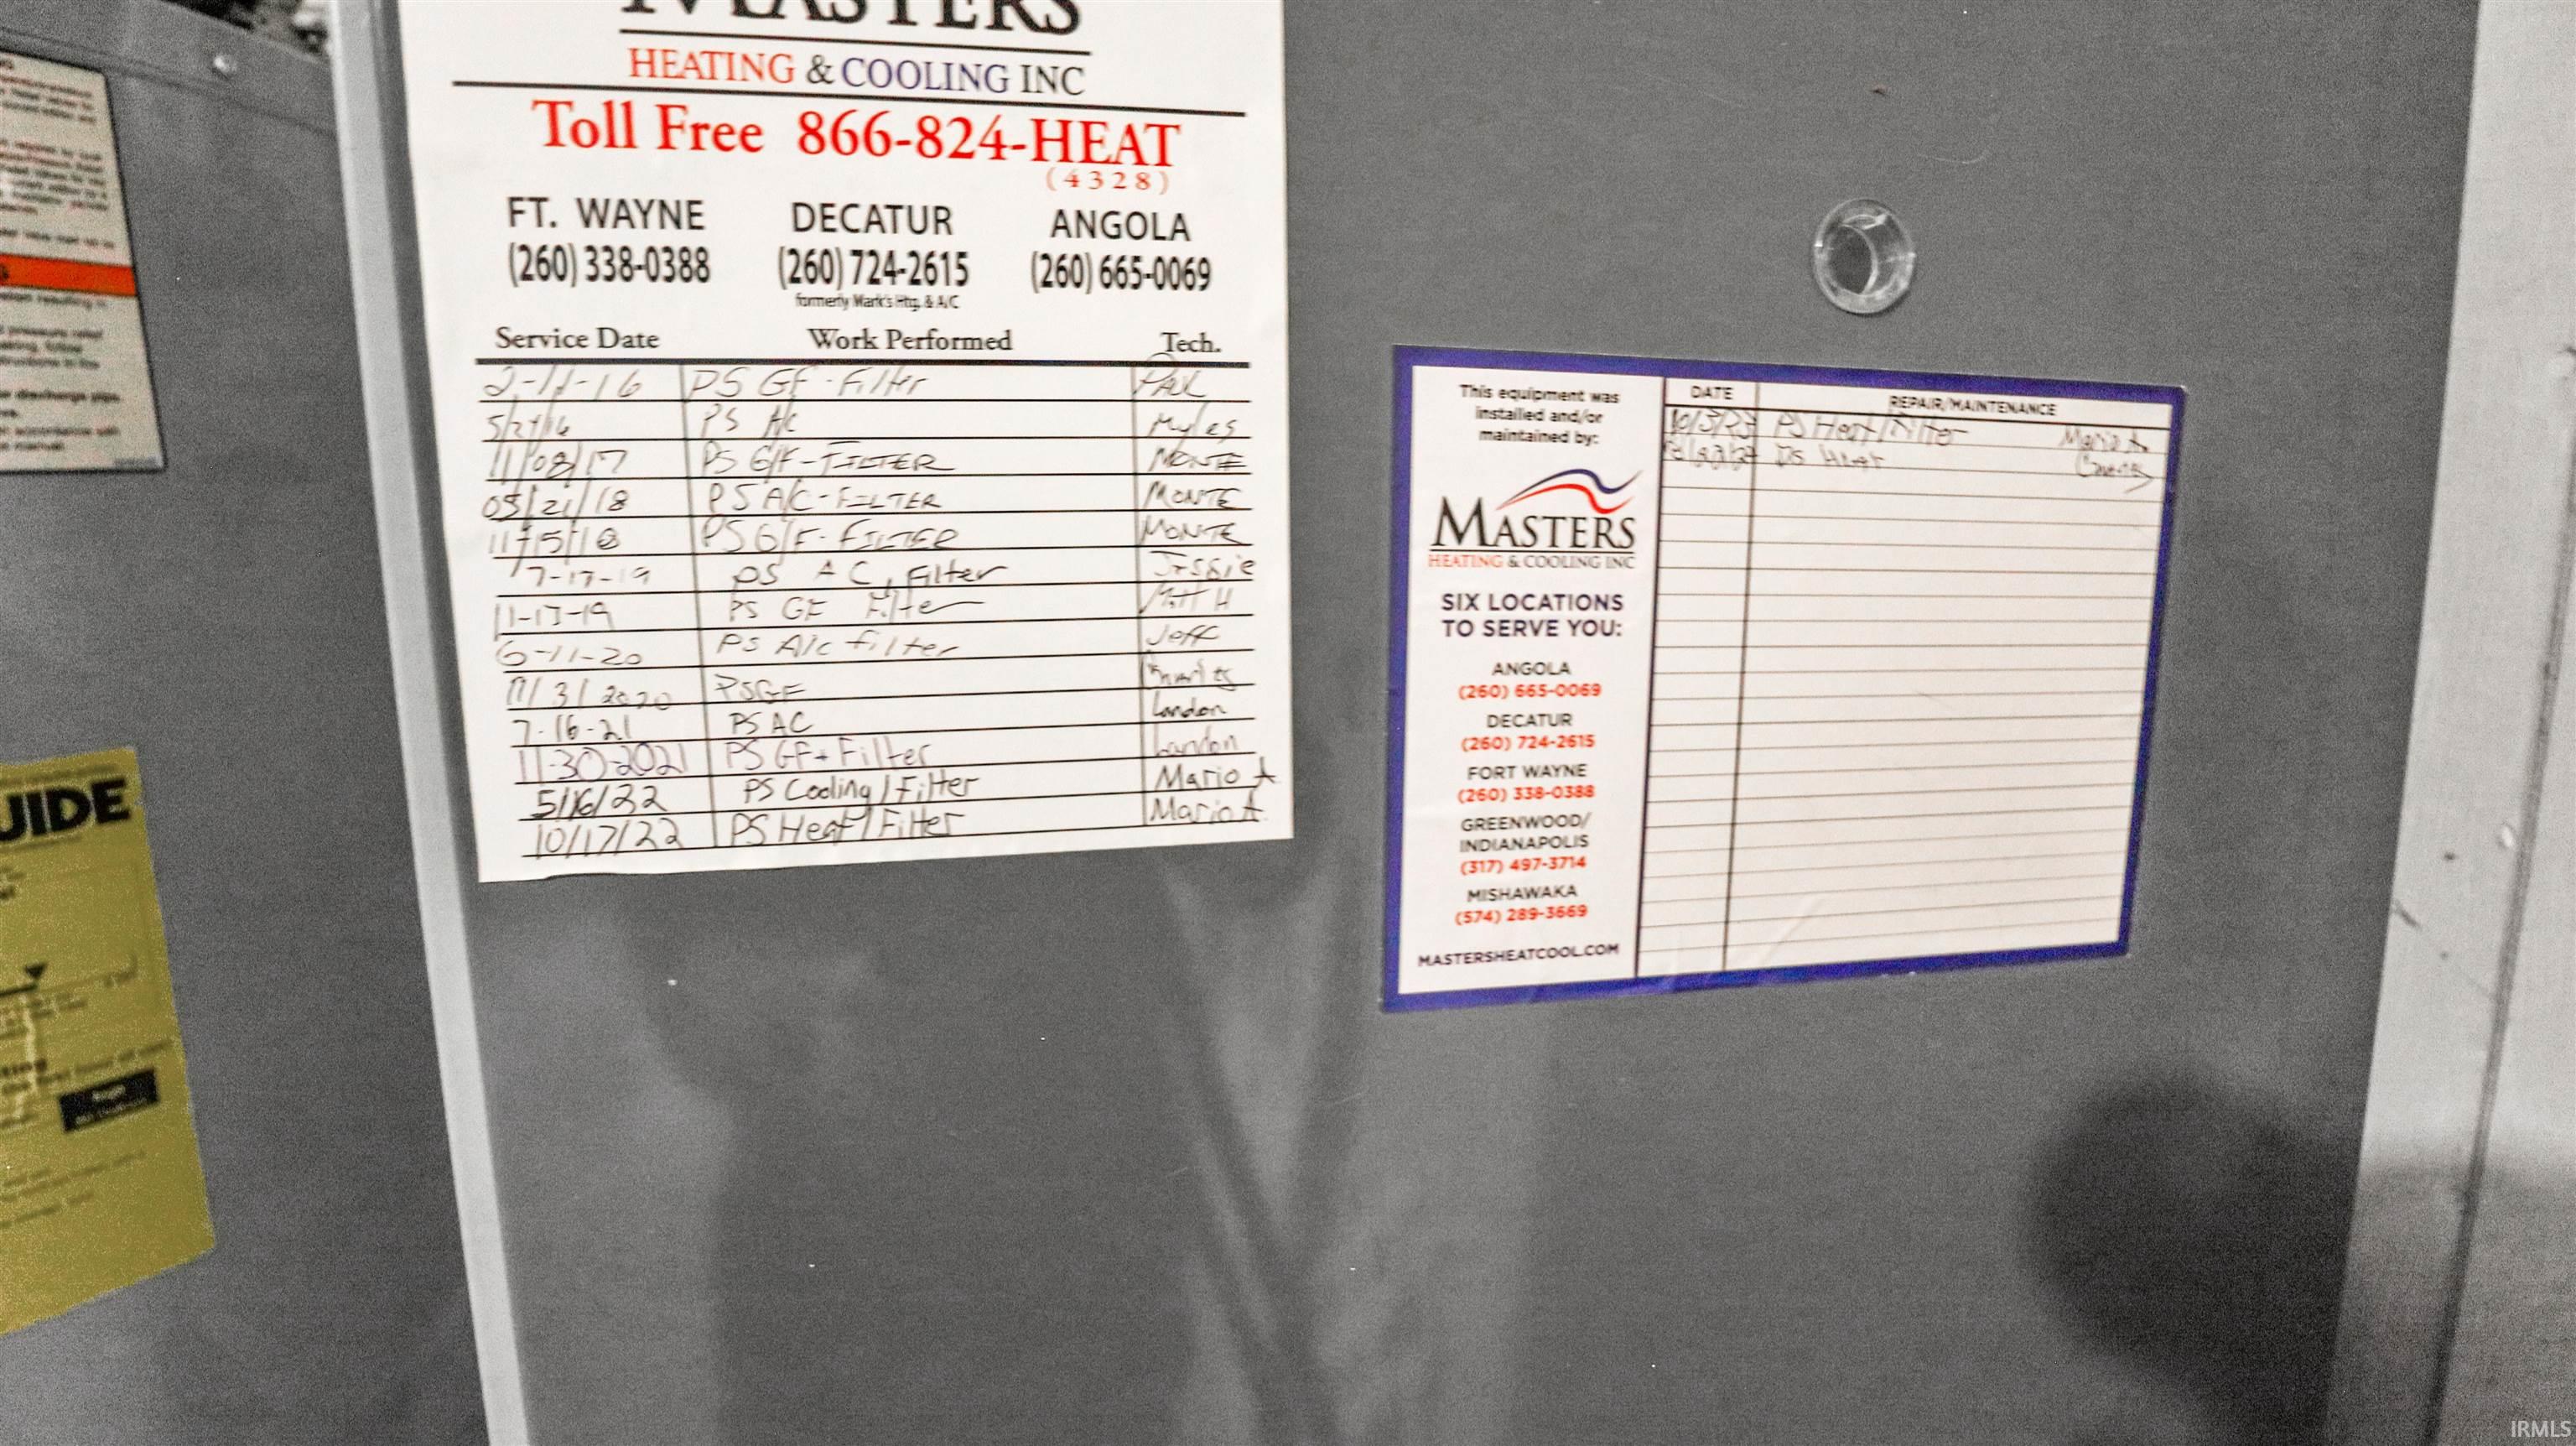 MASTERS
HEATING & COOLING INC
Toll Free 866-824-HEAT
(4328)
FT. WAYNE DECATUR ANGOLA
(260) 338-0388 (260) 724-2615 (260) 665-0069
formerly Mark's Htg. & A/C
Service Date Work Performed Tech.
2-11-16 PS GF-Filter
PS AC Myles
11/08/17 PS G/F-FILTER MONTE
05/21/18 PS A/C-FILTER MONTE
11/15/18 PS G/F-FILTER MONTE
7-17-19 PS AC, Filter Jessie
11-13-19 PS GF Filter Matt H
6-11-20 PS A/c filter Jeff
11/3/2020 PSGF
7-16-21 PS AC Landon
11-30-2021 PS GF+Filter Landon
5/16/22 PS Cooling/Filter Mario A
10/17/22 PS Heat/Filter Mario A.
This equipment was
installed and/or
maintained by:
MASTERS
HEATING & COOLING INC
SIX LOCATIONS
TO SERVE YOU:
ANGOLA
(260) 665-0069
DECATUR
(260) 724-2615
FORT WAYNE
(260) 338-0388
GREENWOOD/
INDIANAPOLIS
(317) 497-3714
MISHAWAKA
(574) 289-3669
MASTERSHEATCOOL.COM
DATE REPAIR/MAINTENANCE
10/3/23 PS Heat/Filter Mario A
PS Heat
UIDE
IRMLS